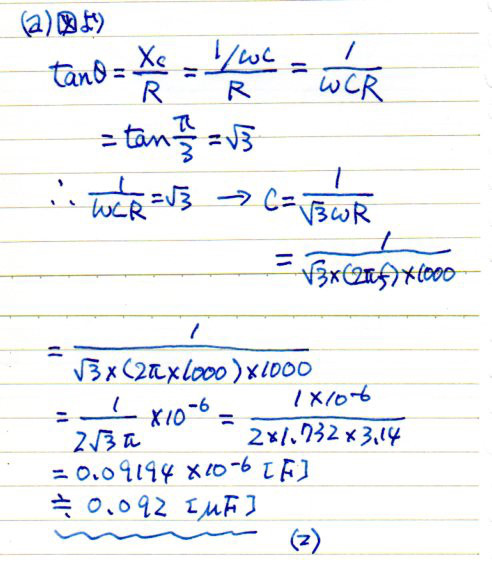 (a) 図より
tanθ = Xc/R = (1/ωC)/R = 1/ωCR
= tan π/3 = √3
∴ 1/ωCR = √3 → C = 1/√3ωR
= 1/√3×(2πf)×1000
= 1/√3×(2π×1000)×1000
= 1/2√3π ×10⁻⁶ = 1×10⁻⁶/2×1.732×3.14
= 0.09194 ×10⁻⁶ [F]
≒ 0.092 [μF]
(2)